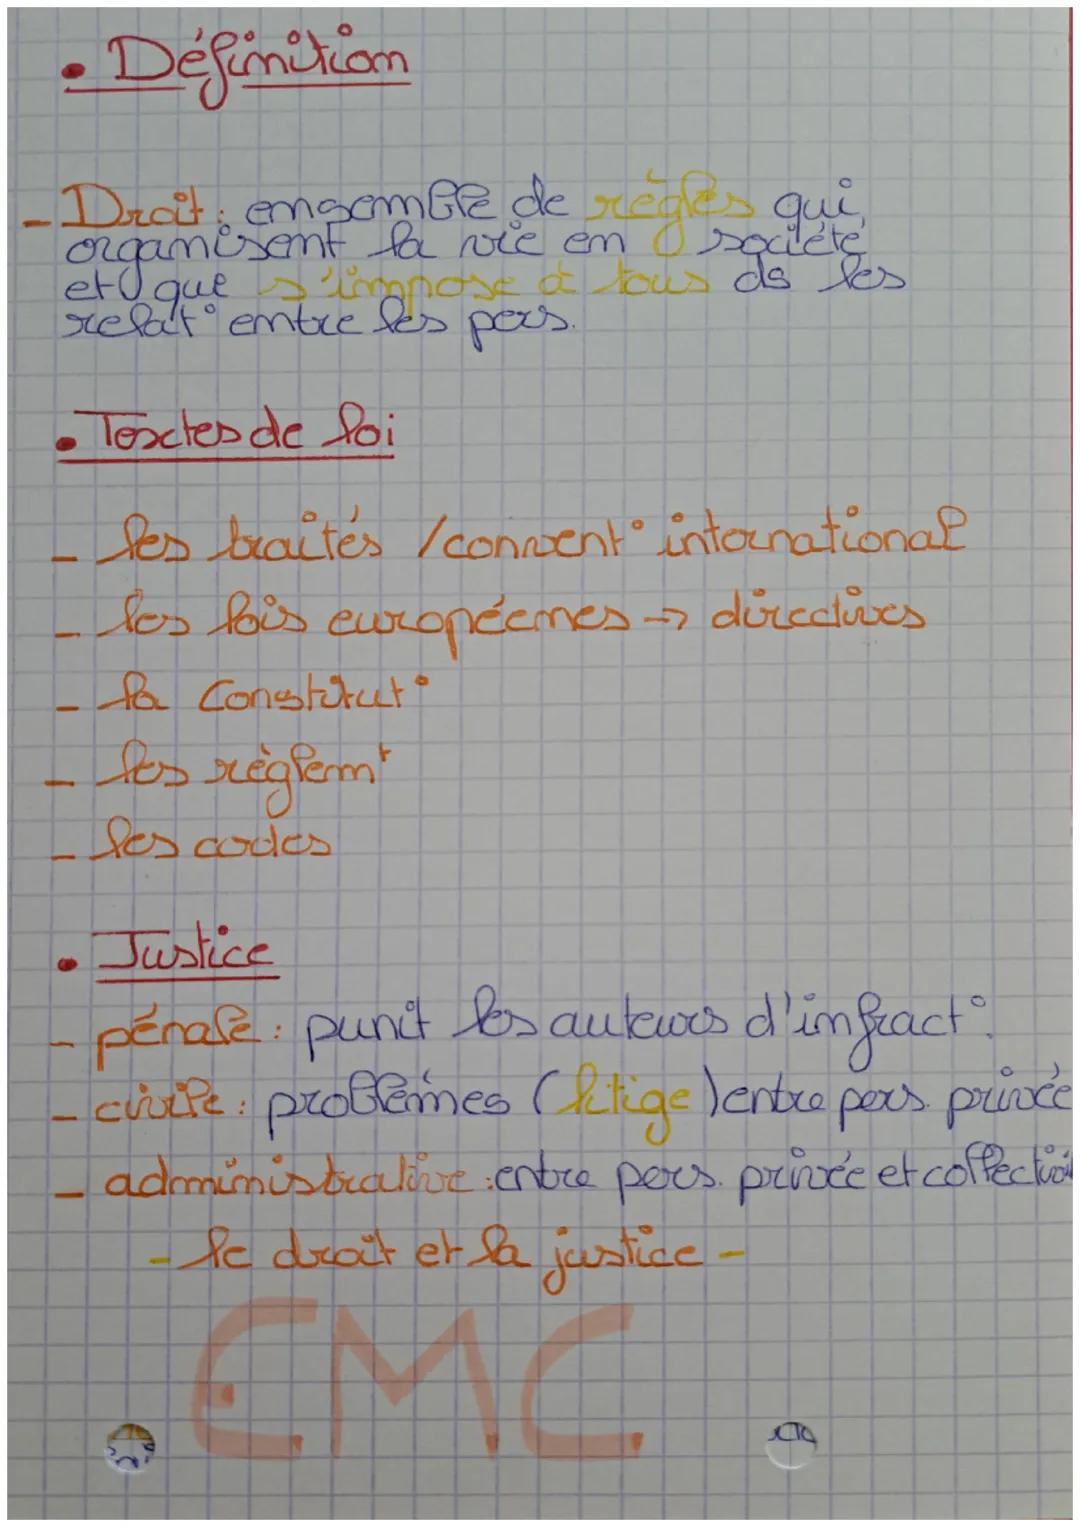 • Définition
- Droit : ensemble de règles qui
organisent la vie en société
et que s'impose à tous ds les
relat° entre les pers.
• Textes de loi
- les traités / convent° international
- les lois européennes → directives
- la Constitut°
- les règlemt
- les codes
• Justice
- pénale : punit les auteurs d'infract°.
- civile : problèmes (litige) entre pers. privée
- administrative : entre pers. privée et collectivi
- le droit et la justice -
EMC